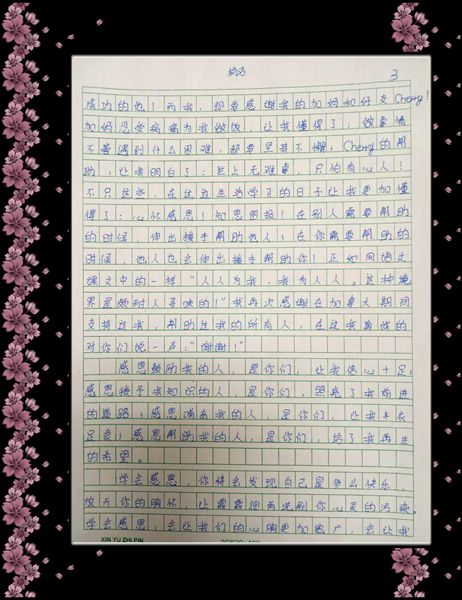 3
成功的他！而我，却要感谢我的加妈和好友Cherry！
加妈忍受病痛为我做饭，让我懂得了：做事情
不管遇到什么困难，都要坚持不懈；Cherry的帮
助，让我明白了：世上无难事，只怕有心人！
不只这些，在这边生活学习的日子让我更加懂
得了：心怀感恩！知恩图报！在别人需要帮助
的时候，伸出援手帮助他人；在你需要帮助的
时候，他人也会伸出援手帮助你！正如同语文
课文中的一样“人人为我，我为人人。这种境
界是颇耐人寻味的！”我再次感谢在加拿大期间
支持过我，帮助过我的所有人，在这我真诚的
对你们说一声：“谢谢！”
感恩鼓励我的人，是你们，让我信心十足；
感恩授予我知识的人，是你们，照亮了我前进
的道路；感恩哺育我的人，是你们，让我丰衣
足食；感恩帮助我的人，是你们，给了我再生
的希望。
学会感恩，你将会发现自己是多么快乐，
放开你的胸怀，让霏霏细雨洗刷你心灵的污染。
学会感恩，会让我们的心胸更加宽广，会让我
XIN YU ZHI PIN
20X20=400